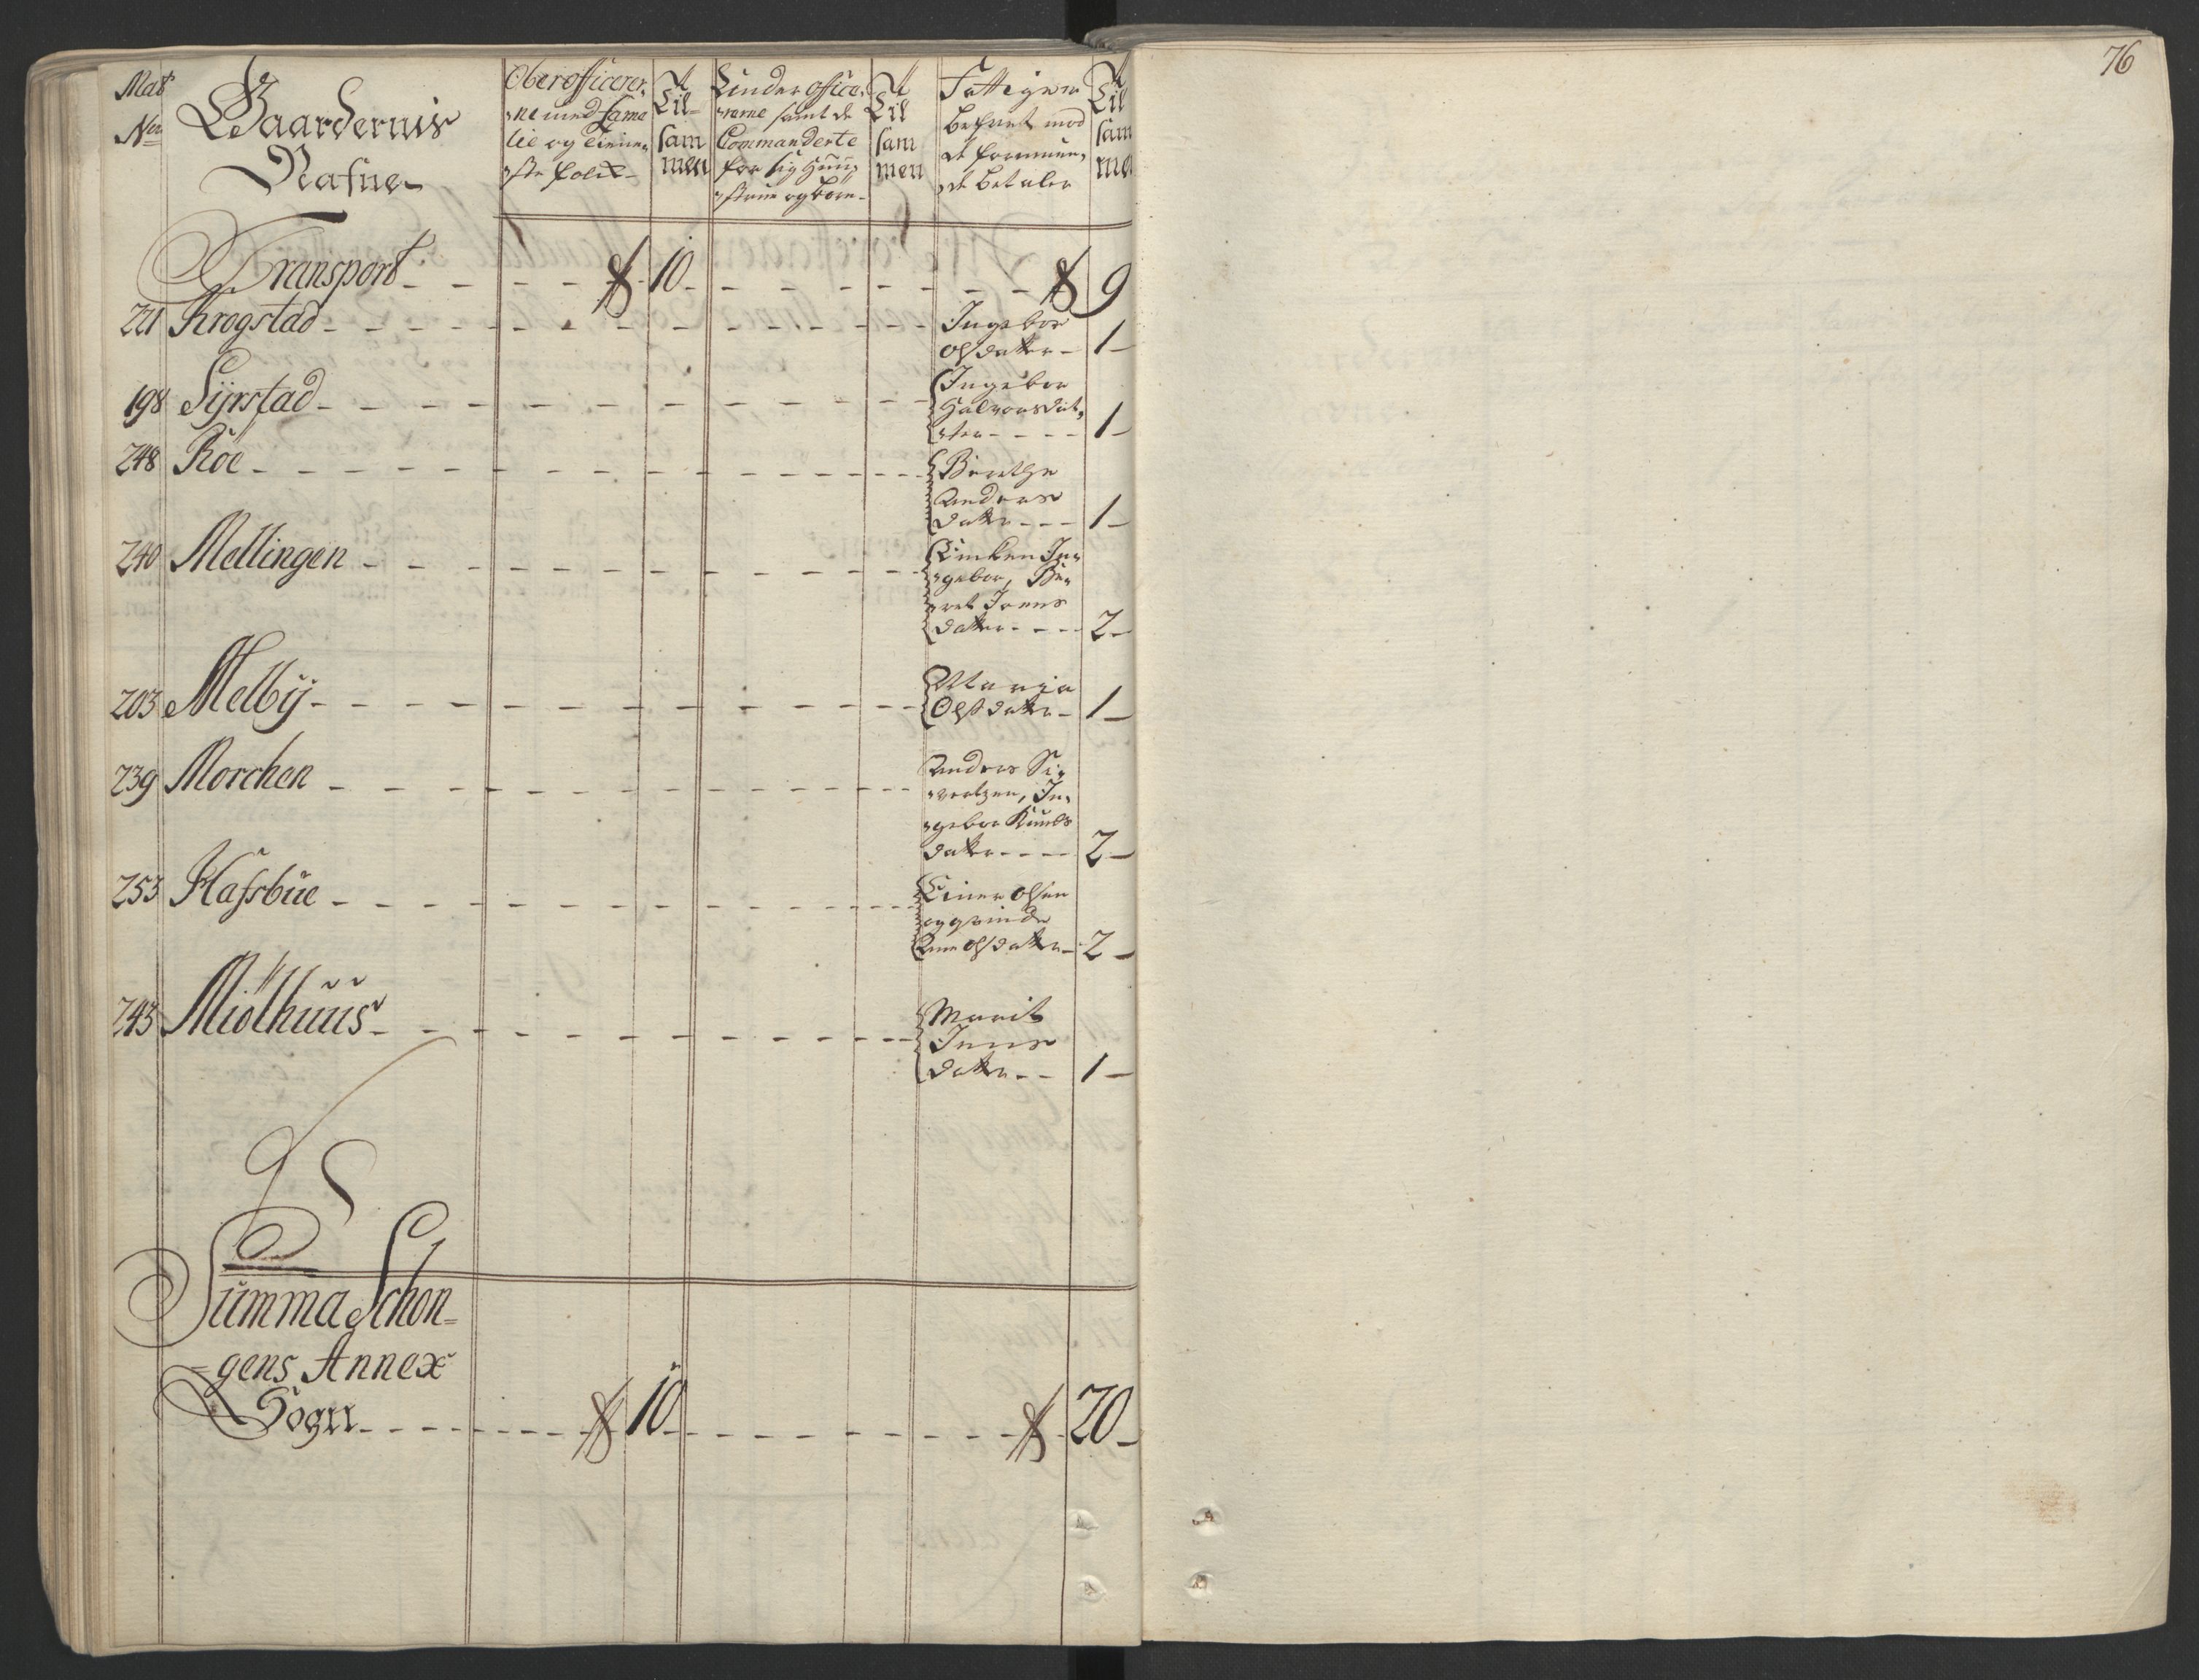 76
Mat
No
Gaardernis
Nafne
Oberofficerer,
ne med fame
lie og tienne,
ste folk
Til
sam
men
Under office,
rerne samt de
Commanderte
for sig Huu,
struer og børn
Til
sam
men
Fattigen
befriet mod
at formuen,
de betaler
Til
sam
men
Transport 10 9
221 Krogstad Ingebor
olsdatter 1
198 Syrstad Ingebor
Halvorsdat,
ter 1
248 Röe Berethe
Anders
datter 1
240 Mellingen Enken In,
gebor, Be,
ret Joens
datter 2
203 Melbÿ Maria
Olsdatter 1
239 Morchen Anders Si,
vertzen, In,
gebor Knuds
datter 2
253 Hafsbue Einer Olsen
og qvinde
Ane olsdatter 2
243 Miölhuus Marit
Jens
datter 1
Summa Schon=
=gens Annex
Sogn 10 20